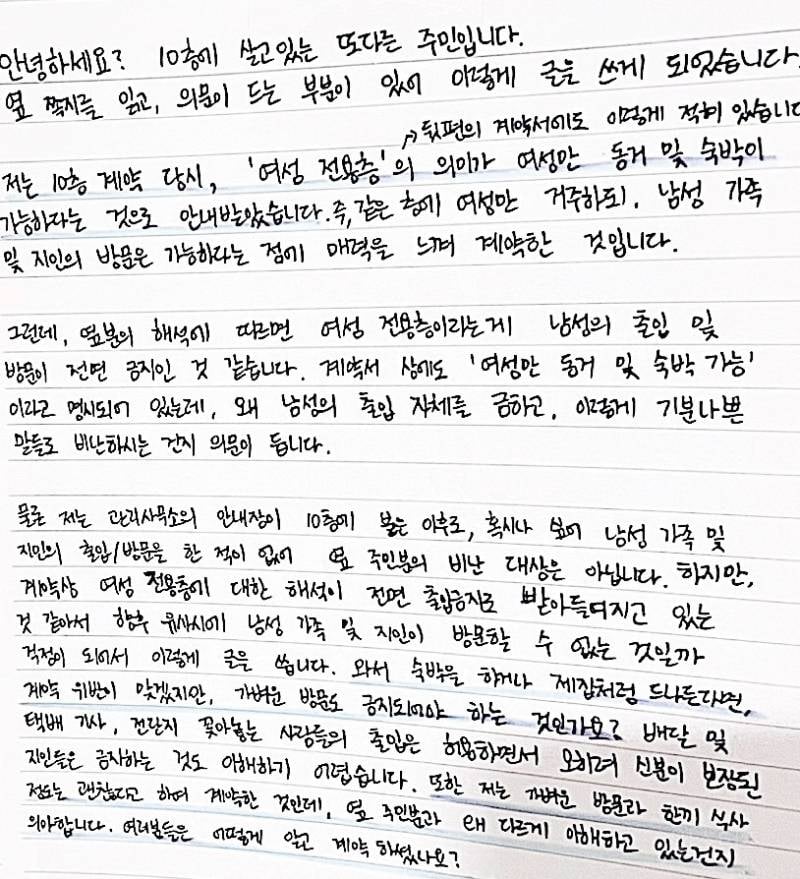 안녕하세요? 10층에 살고있는 또다른 주민입니다.
옆 쪽지를 읽고, 의문이 드는 부분이 있어 이렇게 글을 쓰게 되었습니다.
↱ 뒷편의 계약서에도 이렇게 적혀 있습니다
저는 10층 계약 당시, '여성 전용층'의 의미가 여성만 동거 및 숙박이
가능하다는 것으로 안내받았습니다. 즉, 같은 층에 여성만 거주하되, 남성 가족
및 지인의 방문은 가능하다는 점에 매력을 느껴 계약한 것입니다.
그런데, 옆분의 해석에 따르면 여성 전용층이라는게 남성의 출입 및
방문이 전면 금지인 것 같습니다. 계약서 상에도 '여성만 동거 및 숙박 가능'
이라고 명시되어 있는데, 왜 남성의 출입 자체를 금하고, 이렇게 기분나쁜
말들로 비난하시는 건지 의문이 듭니다.
물론 저는 관리사무소의 안내장이 10층에 붙은 이후로, 혹시나 싶어 남성 가족 및
지인의 출입/방문을 한 적이 없어 옆 주민분의 비난 대상은 아닙니다. 하지만,
계약상 여성 전용층에 대한 해석이 전면 출입금지로 받아들여지고 있는
것 같아서 향후 유사시에 남성 가족 및 지인이 방문할 수 없는 것일까
걱정이 되어서 이렇게 글을 씁니다. 와서 숙박을 하거나 제집처럼 드나든다면,
계약 위반이 맞겠지만, 가벼운 방문도 금지되어야 하는 것인가요? 배달 및
택배 기사, 전단지 꽂아놓는 사람들의 출입은 허용하면서 오히려 신분이 보장된
지인들은 금지하는 것도 이해하기 어렵습니다. 또한 저는 가벼운 방문과 한끼 식사
정도는 괜찮다고 하여 계약한 것인데, 옆 주민분과 왜 다르게 이해하고 있는건지
의아합니다. 여러분들은 어떻게 알고 계약 하셨나요?